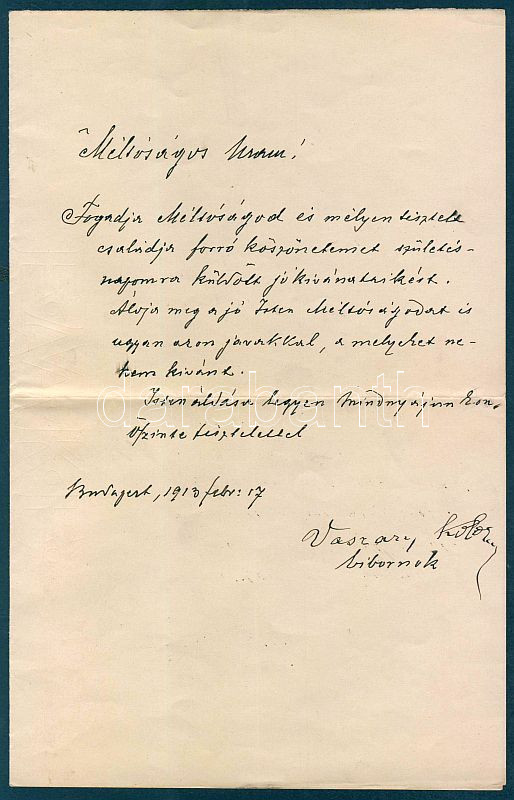 Méltóságos Uram!
Fogadja Méltóságod és mélyen tisztelt
családja forró köszönetemet születés-
napomra küldött jókivánataikért.
Áldja meg a jó Isten Méltóságodat is
ugyan azon javakkal, a melyeket ne-
kem kivánt.
Isten áldása legyen mindnyájun kon.
Őszinte tisztelettel
Budapest, 1913 febr: 17
Vaszary Kolos
bibornok
darabanth